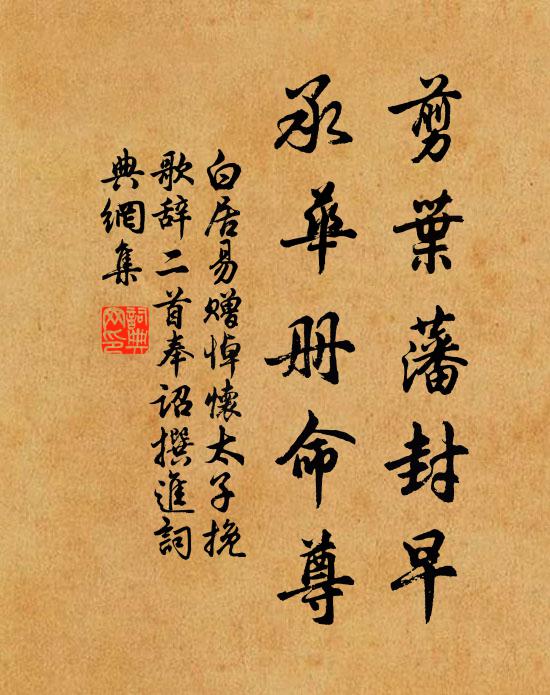 剪葉藩封早
承華册命尊
白居易贈悼懷太子挽
歌辞二首奉诏撰進詞
典網集
詞典網印